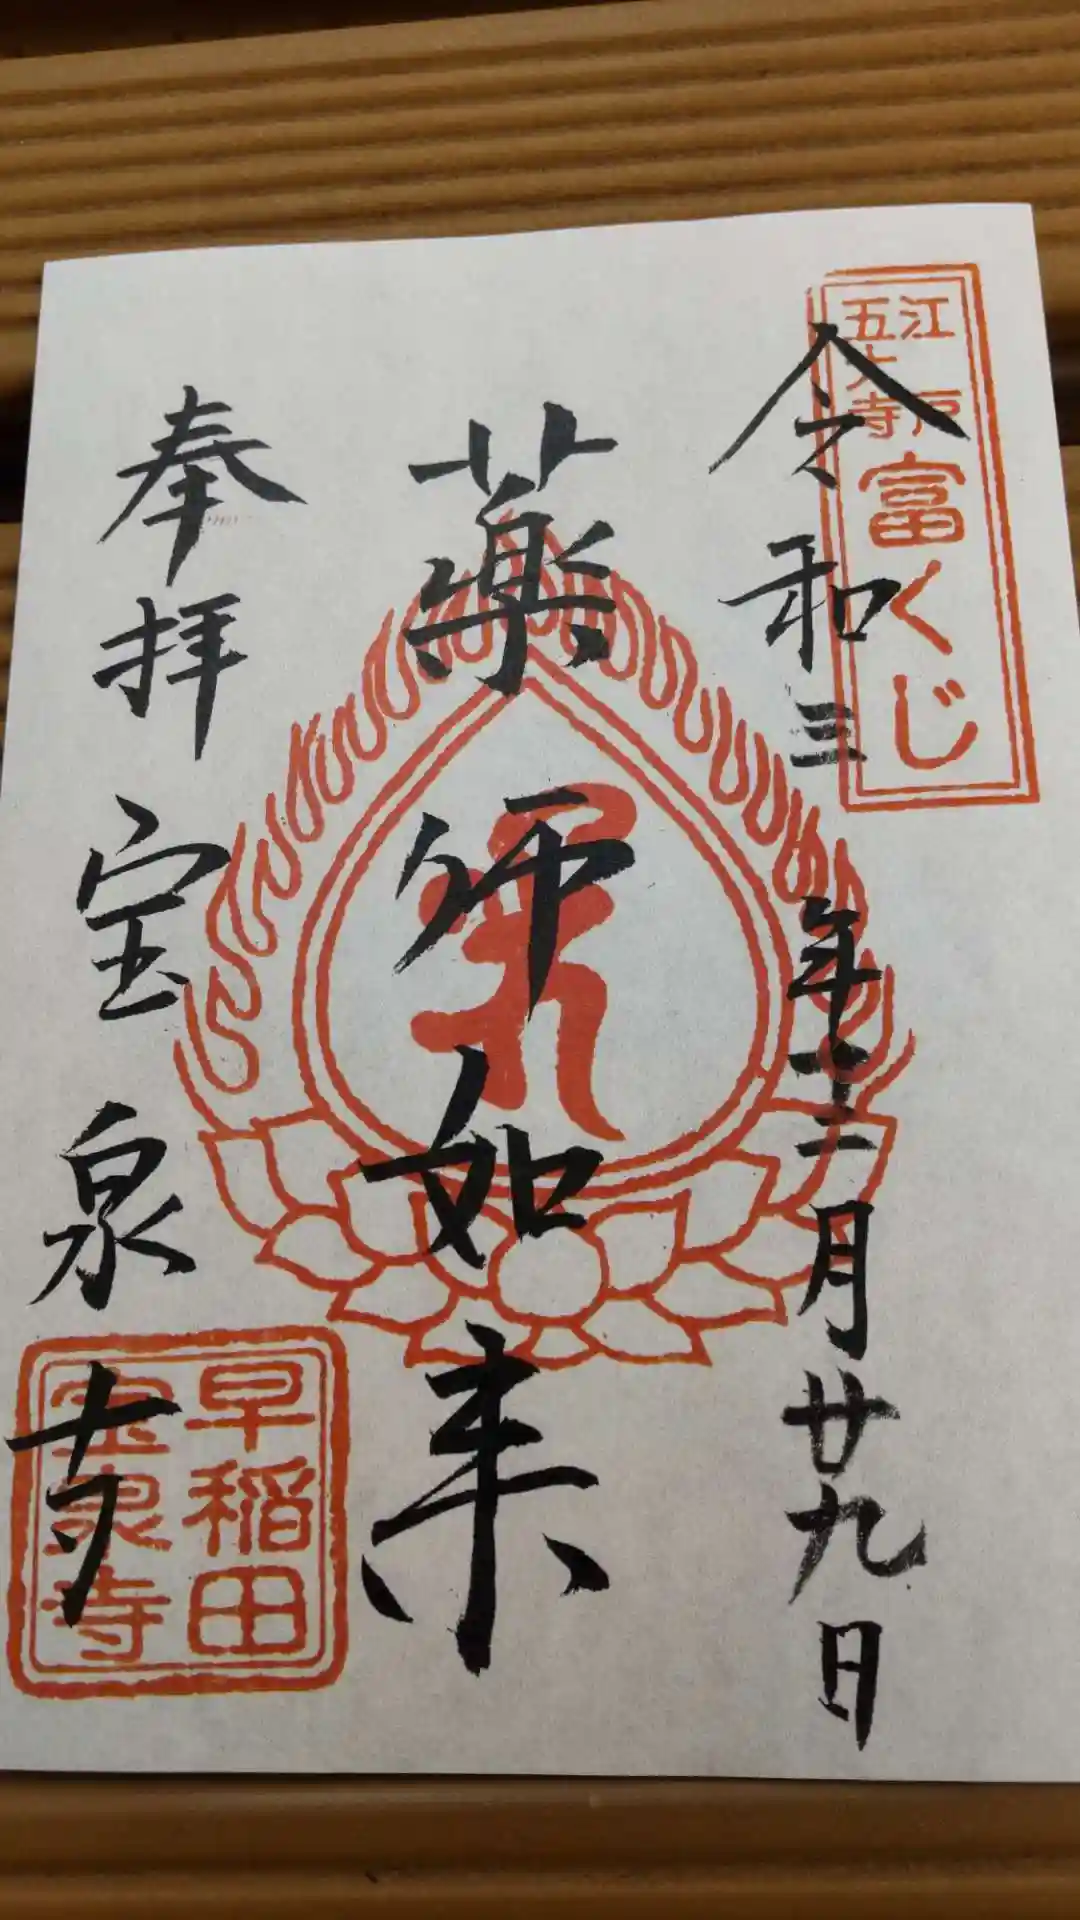 江戸
五大寺
富くじ
令和三年十二月廿九日
薬師如来
奉拝 宝泉寺
早稲田
宝泉寺